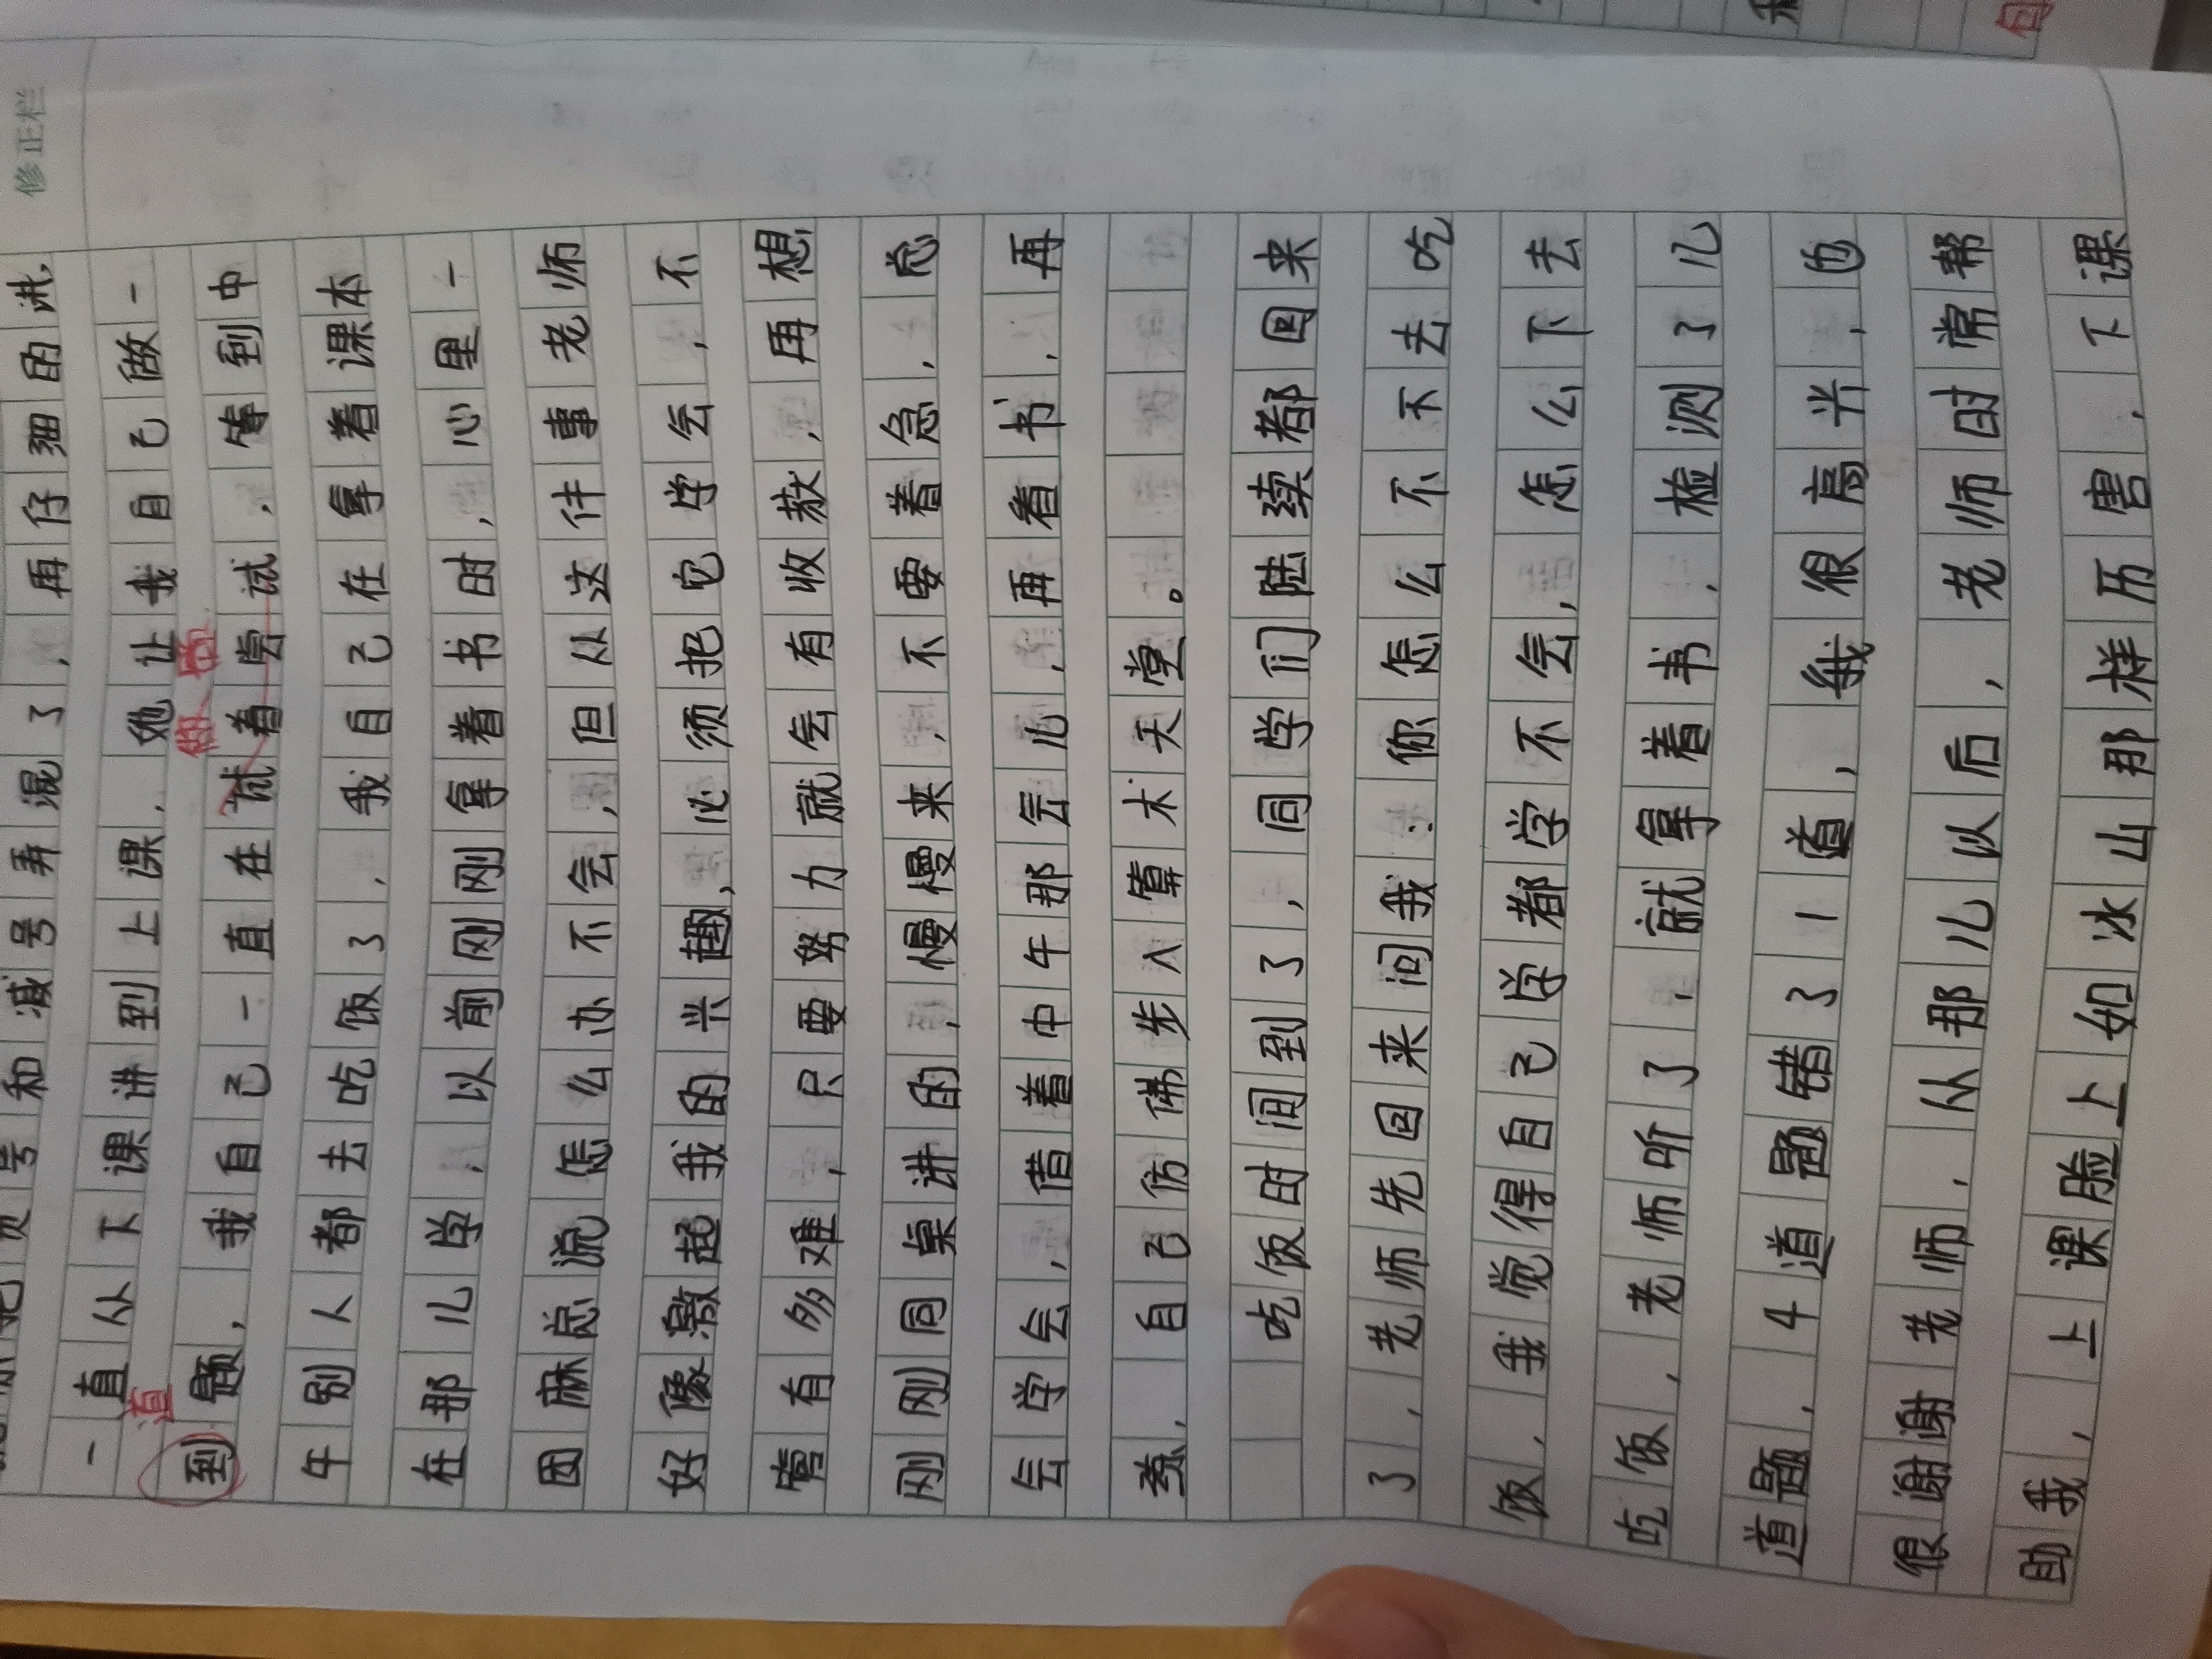 修正栏
和减号弄混了,再仔细的讲,
一直从下课讲到上课,她让我自己做一
道
做 会
到题,我自己一直在试着尝试,等到中
午别人都去吃饭了,我自己在拿着课本
在那儿学,以前刚刚拿着书时,心里一
团麻总说怎么办不会,但从这件事老师
好像激起我的兴趣,必须把它学会,不
管有多难,只要努力就会有收获,再想
刚刚同桌讲的,慢慢来,不要着急,总
会学会,借着中午那会儿,再看书,再
练,自己仿佛步入算术天堂。
吃饭时间到了,同学们陆续都回来
了,老师先回来问我:你怎么不不去吃
饭,我觉得自己学都学不会,怎么下去
吃饭,老师听了,就拿着书,检测了几
道题,4道题错了1道,我很高兴,也
很谢谢老师,从那儿以后,老师时常帮
助我,上课脸上如冰山那样历害,下课